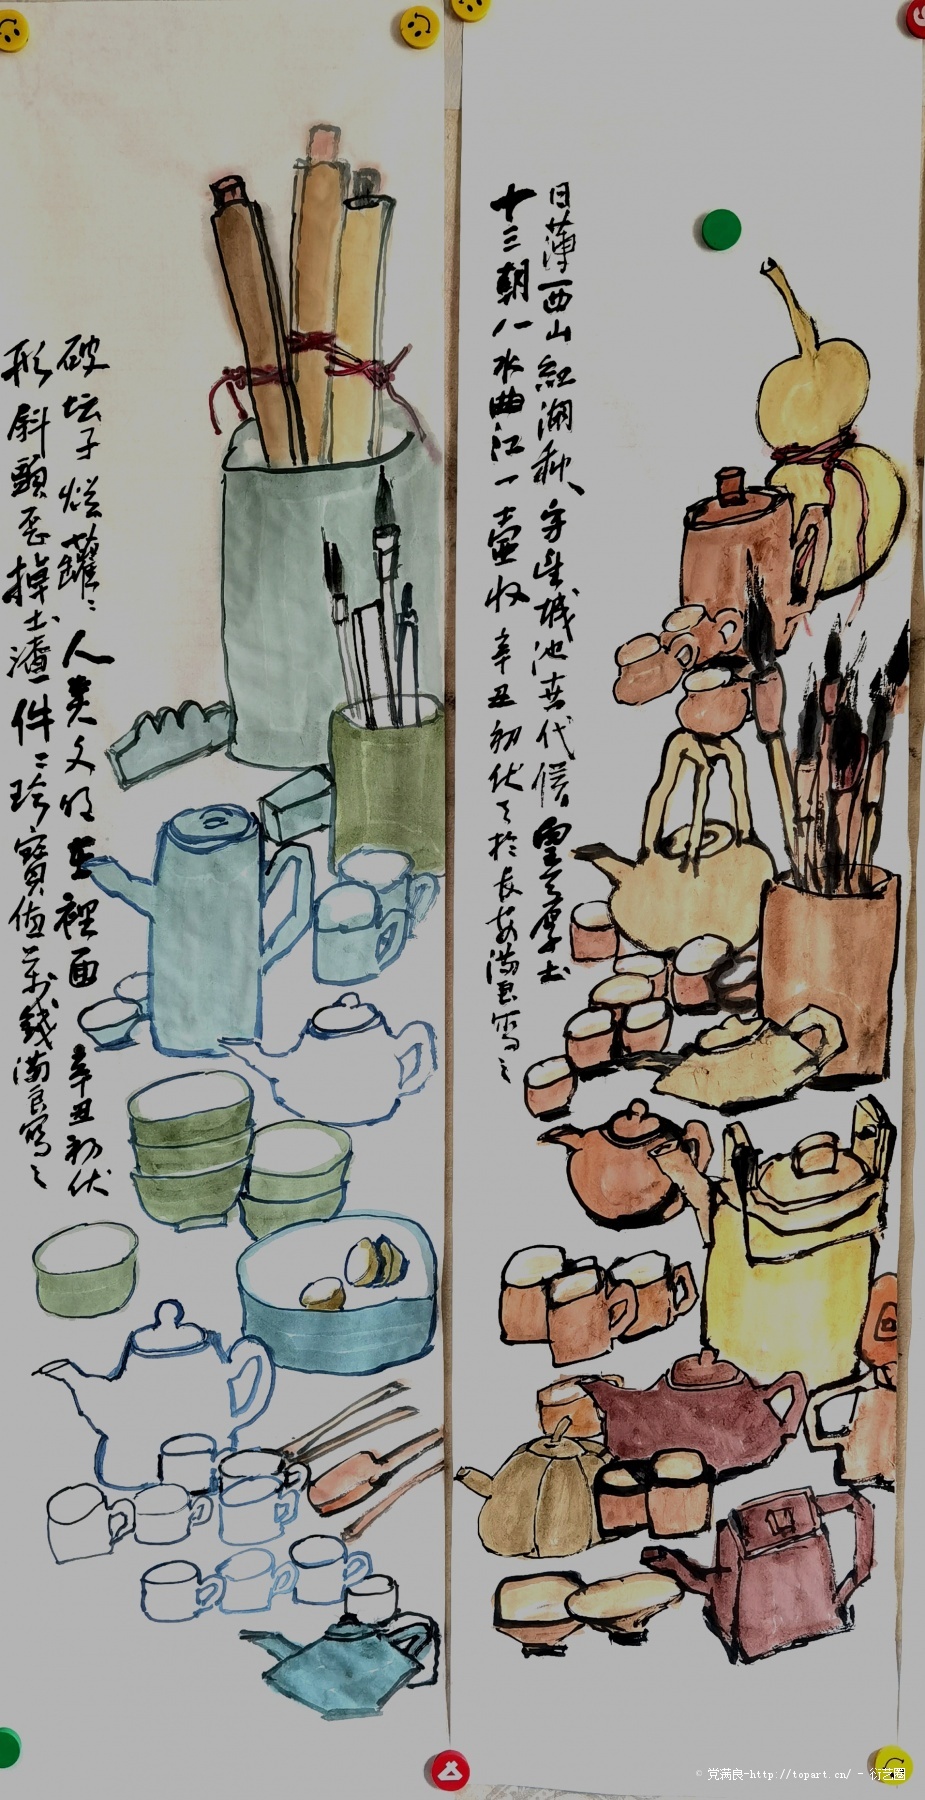 日薄西山紅湖秋、守望城池去代侯
十三朝八水曲江一壶收 辛丑初伏天於长安满良写之
破坛子烂罐罐 人类文明在裡面 辛丑初伏
形斜頭歪掉土渣 件件珍寶值萬錢 满良写之
© 党满良-http://topart.cn/ - 衍艺圈